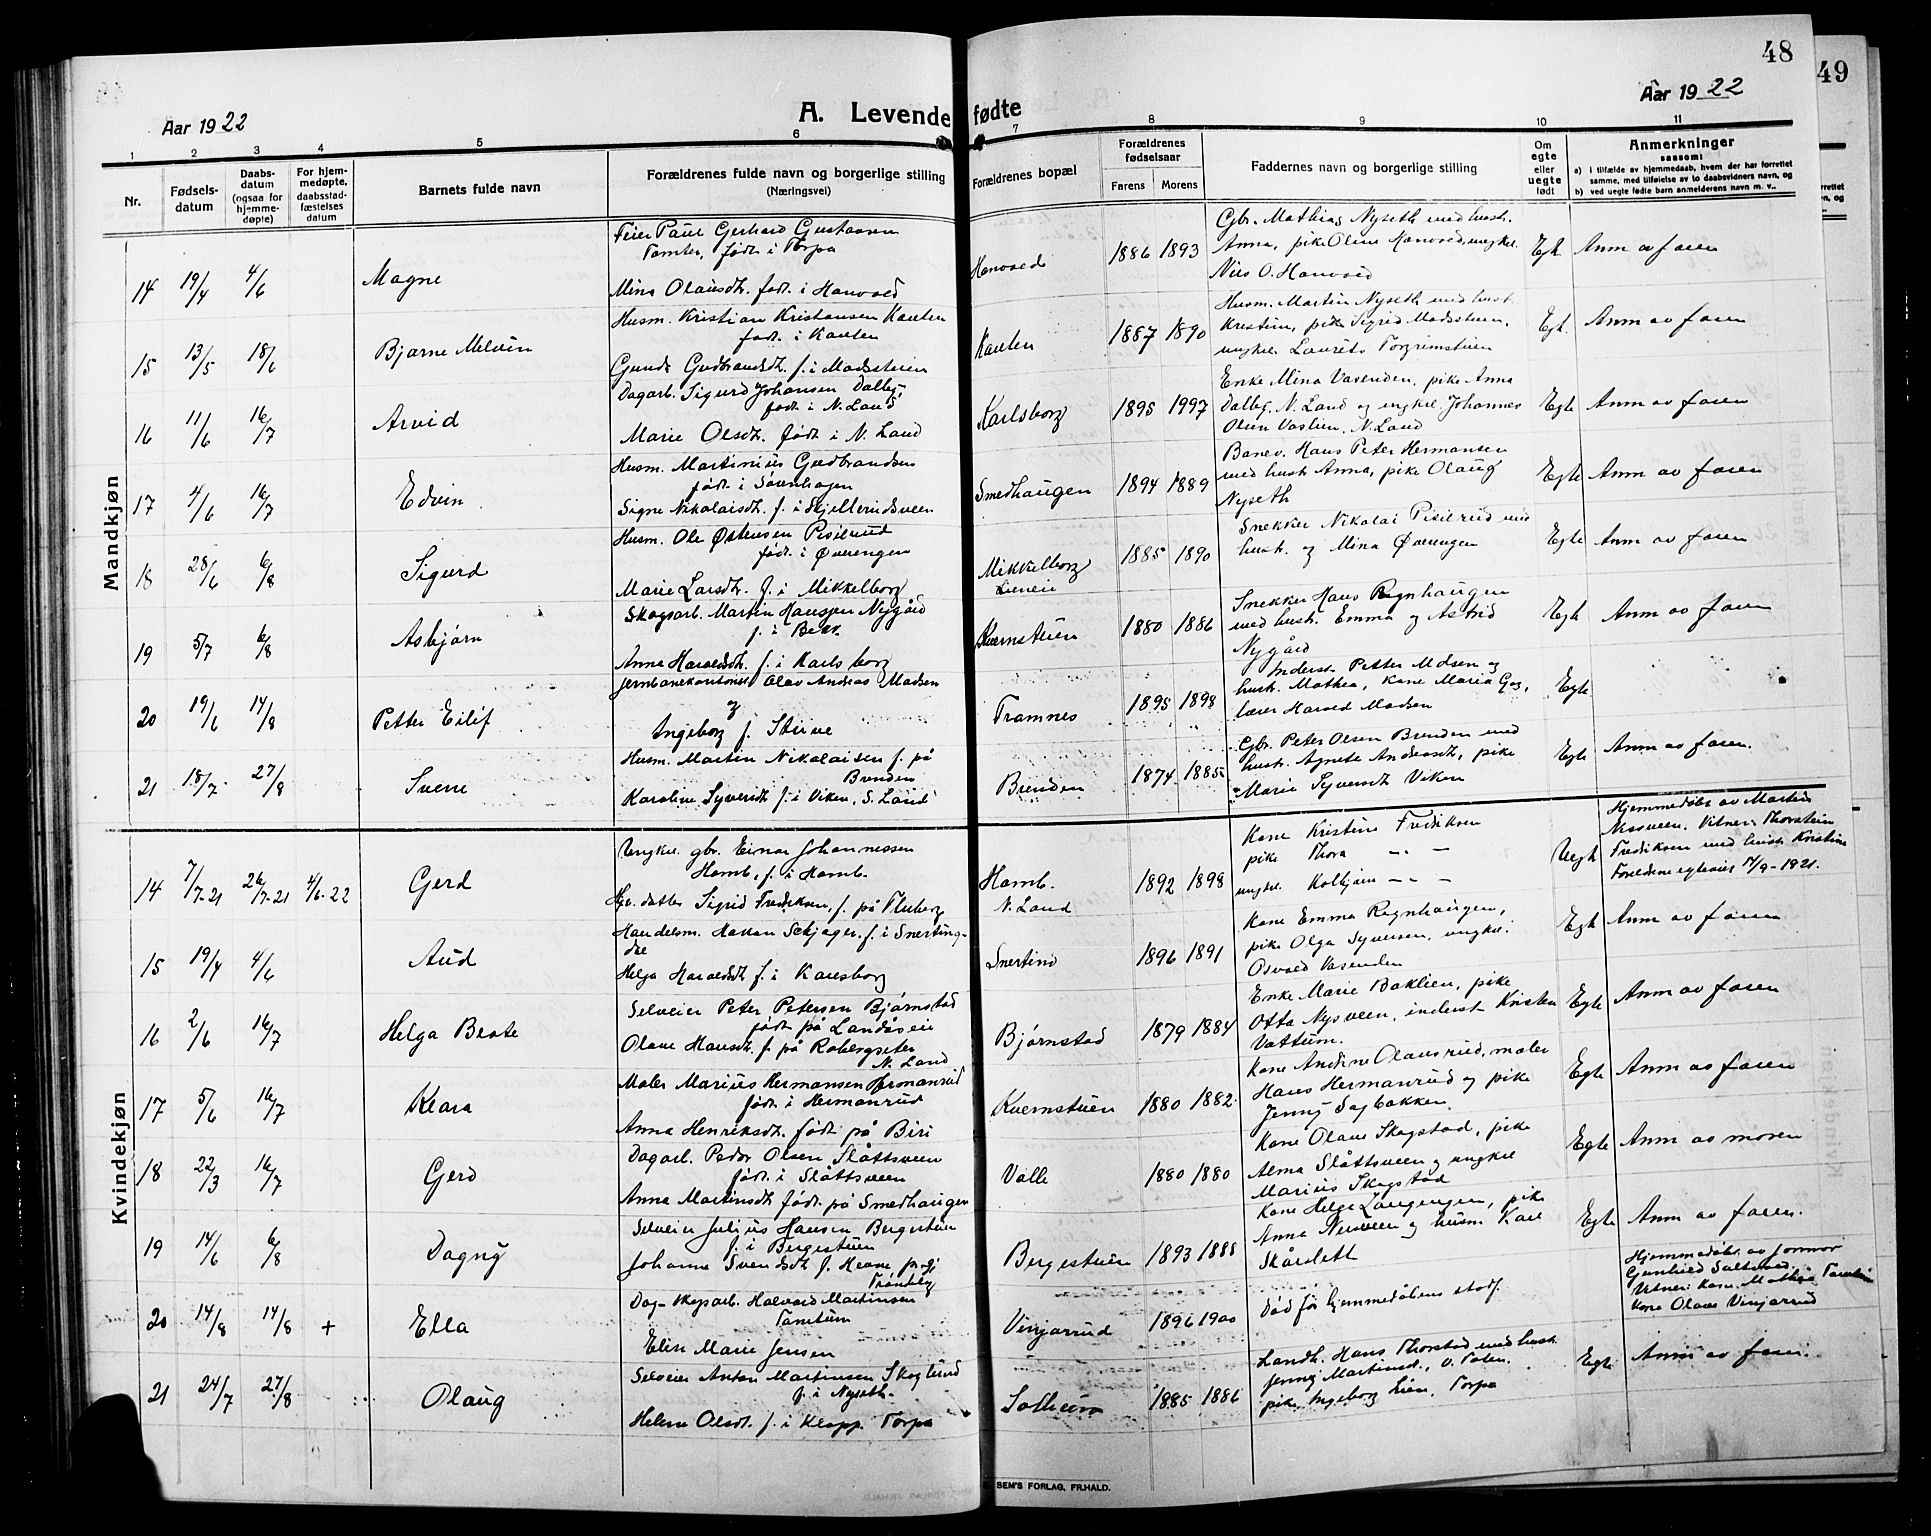 48
49
Aar 1922
A. Levende fødte
Aar 1922
1 2 3 4 5 6 7 8 9 10 11
Nr.
Fødsels-
datum
Daabs-
datum
(ogsaa for
hjemme-
døpte)
For hjem-
medøpte,
daabsstad-
fæstelses
datum
Barnets fulde navn
Forældrenes fulde navn og borgerlige stilling
(Næringsvei)
Forældrenes bopæl
Forældrenes
fødselsaar
Farens Morens
Faddernes navn og borgerlige stilling
Om
egte
eller
uegte
født
Anmerkninger
saasom:
a) i tilfælde av hjemmedaab, hvem der har forrettet
samme, med tilføielse av to daabsvidners navn, og
b) ved uegte fødte barn anmelderens navn m. v..
Mandkjøn
14 19/4 4/6 Magne
Feier Paul Gerhard Gustavsen
Tomter, født i Torpa
Mina Olausdt. født i Hanvold
Hanvold 1886 1893
Gbr. Mathias Nyseth med hust.
Anna, pike Oline Hanvold, ungkar
Nils O. Hanvold
Egte Anm av faren
15 13/5 18/6 Bjarne Melvin
Husm. Kristian Kristiansen Kanten
født i Kanten
Gunda Gudbrandsdt. f. i Madsstuen
Kanten 1887 1890
Husm. Martin Nyseth med hust.
Kristine, pike Sigrid Madsstuen,
ungkar Laurits Torgrimstuen
Egt. Anm av faren
16 11/6 16/7 Arvid
Dagarb. Sigurd Johansen Dalby,
født i N. Land
Marie Olsdt. født i N. Land
Karlsborg 1895 1997
Enke Mina Vasenden, pike Anna
Dalby, N. Land og ungkar Johannes
Olsen Vaslien, N. Land
Egte Anm av faren
17 4/6 16/7 Edvin
Husm. Martinius Gudbrandsen
født i Søvnhagen
Signe Nikolaisdt. f. i Skjellerudsveen
Smedhaugen 1894 1889
Banev. Hans Peter Hermansen
med hust. Anna, pike Olaug
Nyseth
Egte Anm av faren
18 28/6 6/8 Sigurd
Husm. Ole Østensen Pisilrud
født i Øverengen
Marie Larsdt. f. i Mikkelborg
Mikkelborg
Lieneie 1885 1890
Snekker Nikolai Pisilrud med
hust. og Mina Øverengen
Egte Anm av faren
19 5/7 6/8 Asbjørn
Skogsarb. Martin Hansen Nygård
f. i Bekk.
Anna Haraldsdt. f. i Karlsborg
Kvernstuen 1880 1886
Snekker Hans Rognhaugen
med hust. Emma og Astrid
Nygård
Egte Anm av faren
20 19/6 14/8 Petter Eilif
Jernbanekontorist Olav Andreas Madsen
og
Ingeborg f. Steine
Framnes 1895 1898
Inderst Petter Madsen og
hust. Mathea, Kone Maria Gas,
lærer Harald Madsen
Egte
21 18/7 27/8 Sverre
Husm. Martin Nikolaisen f. på
Brenden
Karoline Syversdt. f. i Viken, S. Land
Brenden 1874 1885
Gbr. Peter Olsen Brenden med
hust. Agnete Andersdt., pike
Marie Syversdt. Viken
Egte Anm av faren.
Kvindekjøn
14 7/7-21 26/7-21 4/6-22 Gerd
Ungkar gbr. Einar Johannessen
Homb, f. i Homb.
Gbr. datter Sigrid Fredriksen, f. på Fluberg
Homb.
N. Land 1892 1898
Kone Kristine Fredriksen
pike Thora — . —
ungkar Kolbjørn — . —
Uegte
Hjemmedøbt av Martin
Nysveen. Vitner: Thorstein
Fredriksen med hust. Kristine
Foreldrene egteviet 17/9-1921.
15 19/4 4/6 Aud
Handelsm. Haakon Sehjager, f. i Snerting-
dal
Helga Haraldsdt f. i Karlsborg
Snertind 1896 1891
Kone Emma Rognhaugen,
pike Olga Syversen, ungkar
Osvald Vasenden
Egte Anm av faren
16 2/6 16/7 Helga Beate
Selveier Peter Petersen Bjørnstad
født på Landåseie
Olave Hansdt. f. på Robergseter
N. Land
Bjørnstad 1879 1884
Enke Marie Baklien, pike
Otta Nysveen, inderst Kristen
Vattum.
Egte Anm av faren
17 5/6 16/7 Klara
Maler Marius Hermansen Hermanrud
født i Hermanrud
Anna Henriksdt. født på Biri
Kvernstuen 1880 1882
Kone Andine Olausrud, maler
Hans Hermanrud og pike
Jenny Sagbakken
Egte Anm av faren
18 22/3 16/7 Gerd
Dagarb. Peder Olsen Slåttsveen
født i Slåttsveen
Anna Martinsdt. født på Smedhaugen
Valle 1880 1880
Kone Olave Skogstad, pike
Alma Slåttsveen og ungkar
Marius Skogstad
Egte Anm av moren
19 14/6 6/8 Dagny
Selveier Julius Hansen Bergestuen
f. i Bergestuen
Johanne Svendsdt. f.
Bergestuen 1893 1888
Kone Helga Langengen, pike
Anna Nysveen og husm. Karl
Skårslett
Egte Anm av faren.
20 14/8 14/8 + Ella
Dag- skogsarb. Halvard Martinsen
Tomtum
Elise Marie Jensen
Vinjarrud 1896 1900
Død før hjemmedåbens stadf.
Hjemmedøbt av jormor
Gunhild
Vitner: Kone Mathea Tomtum
Kone Olave Vinjarrud
21 24/7 27/8 Olaug
Selveier Anton Martinsen Skoglund
f. i Nyseth
Helene Olsdt. f. i Klopp. Torpa
Solheim 1885 1886
Landh. Hans Thorstad med hust.
Jenny Martinsdt., V. Toten,
pike Ingeborg Lien, Torpa
Egte Anm av faren.
SEM'S FORLAG, FR.HALD.